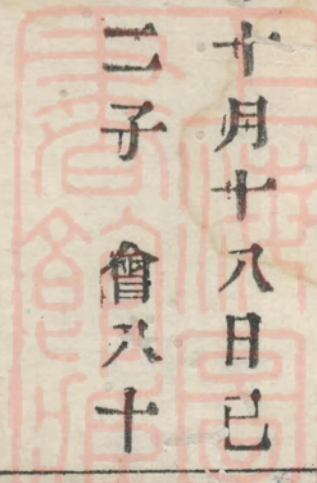 十月十八日已
二子　會八十